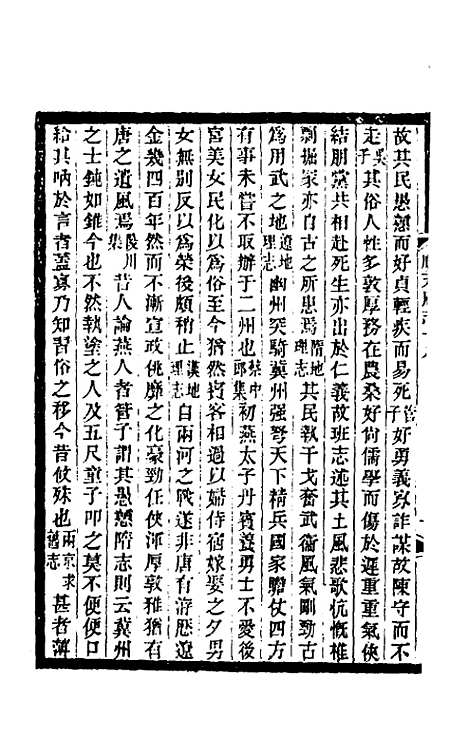 故其民愚戇而好貞輕疾而易死管子好勇義寡詐謀故陳守而不
走吳子其俗人性多敦厚務在農桑好尙儒學而傷於遲重重氣俠
結朋黨共相赴死生亦出於仁義故班志述其土風悲歌忼慨椎
剽掘冢亦自古之所患焉隋地理志其民執干戈奮武衞風氣剛勁古
爲用武之地遼地理志幽州突騎冀州强弩天下精兵國家贍仗四方
有事未嘗不取辦于二州也蔡中郎集初燕太子丹賓養勇士不愛後
宮美女民化以爲俗至今猶然賓客相過以婦侍宿嫁娶之夕男
女無别反以爲榮後頗稍止漢地理志自兩河之戰遂非唐有淪懕遼
金幾四百年然而不漸宣政侈靡之化豪勁任俠渾厚敦雅猶有
唐之遺風焉陵川集昔人論燕人者管子謂其愚戇隋志則云冀州
之士鈍如錐今也不然執塗之人及五尺童子叩之莫不便便口
給其吶於言者蓋寡乃知習俗之移今昔攸殊也兩京求舊志甚者薄